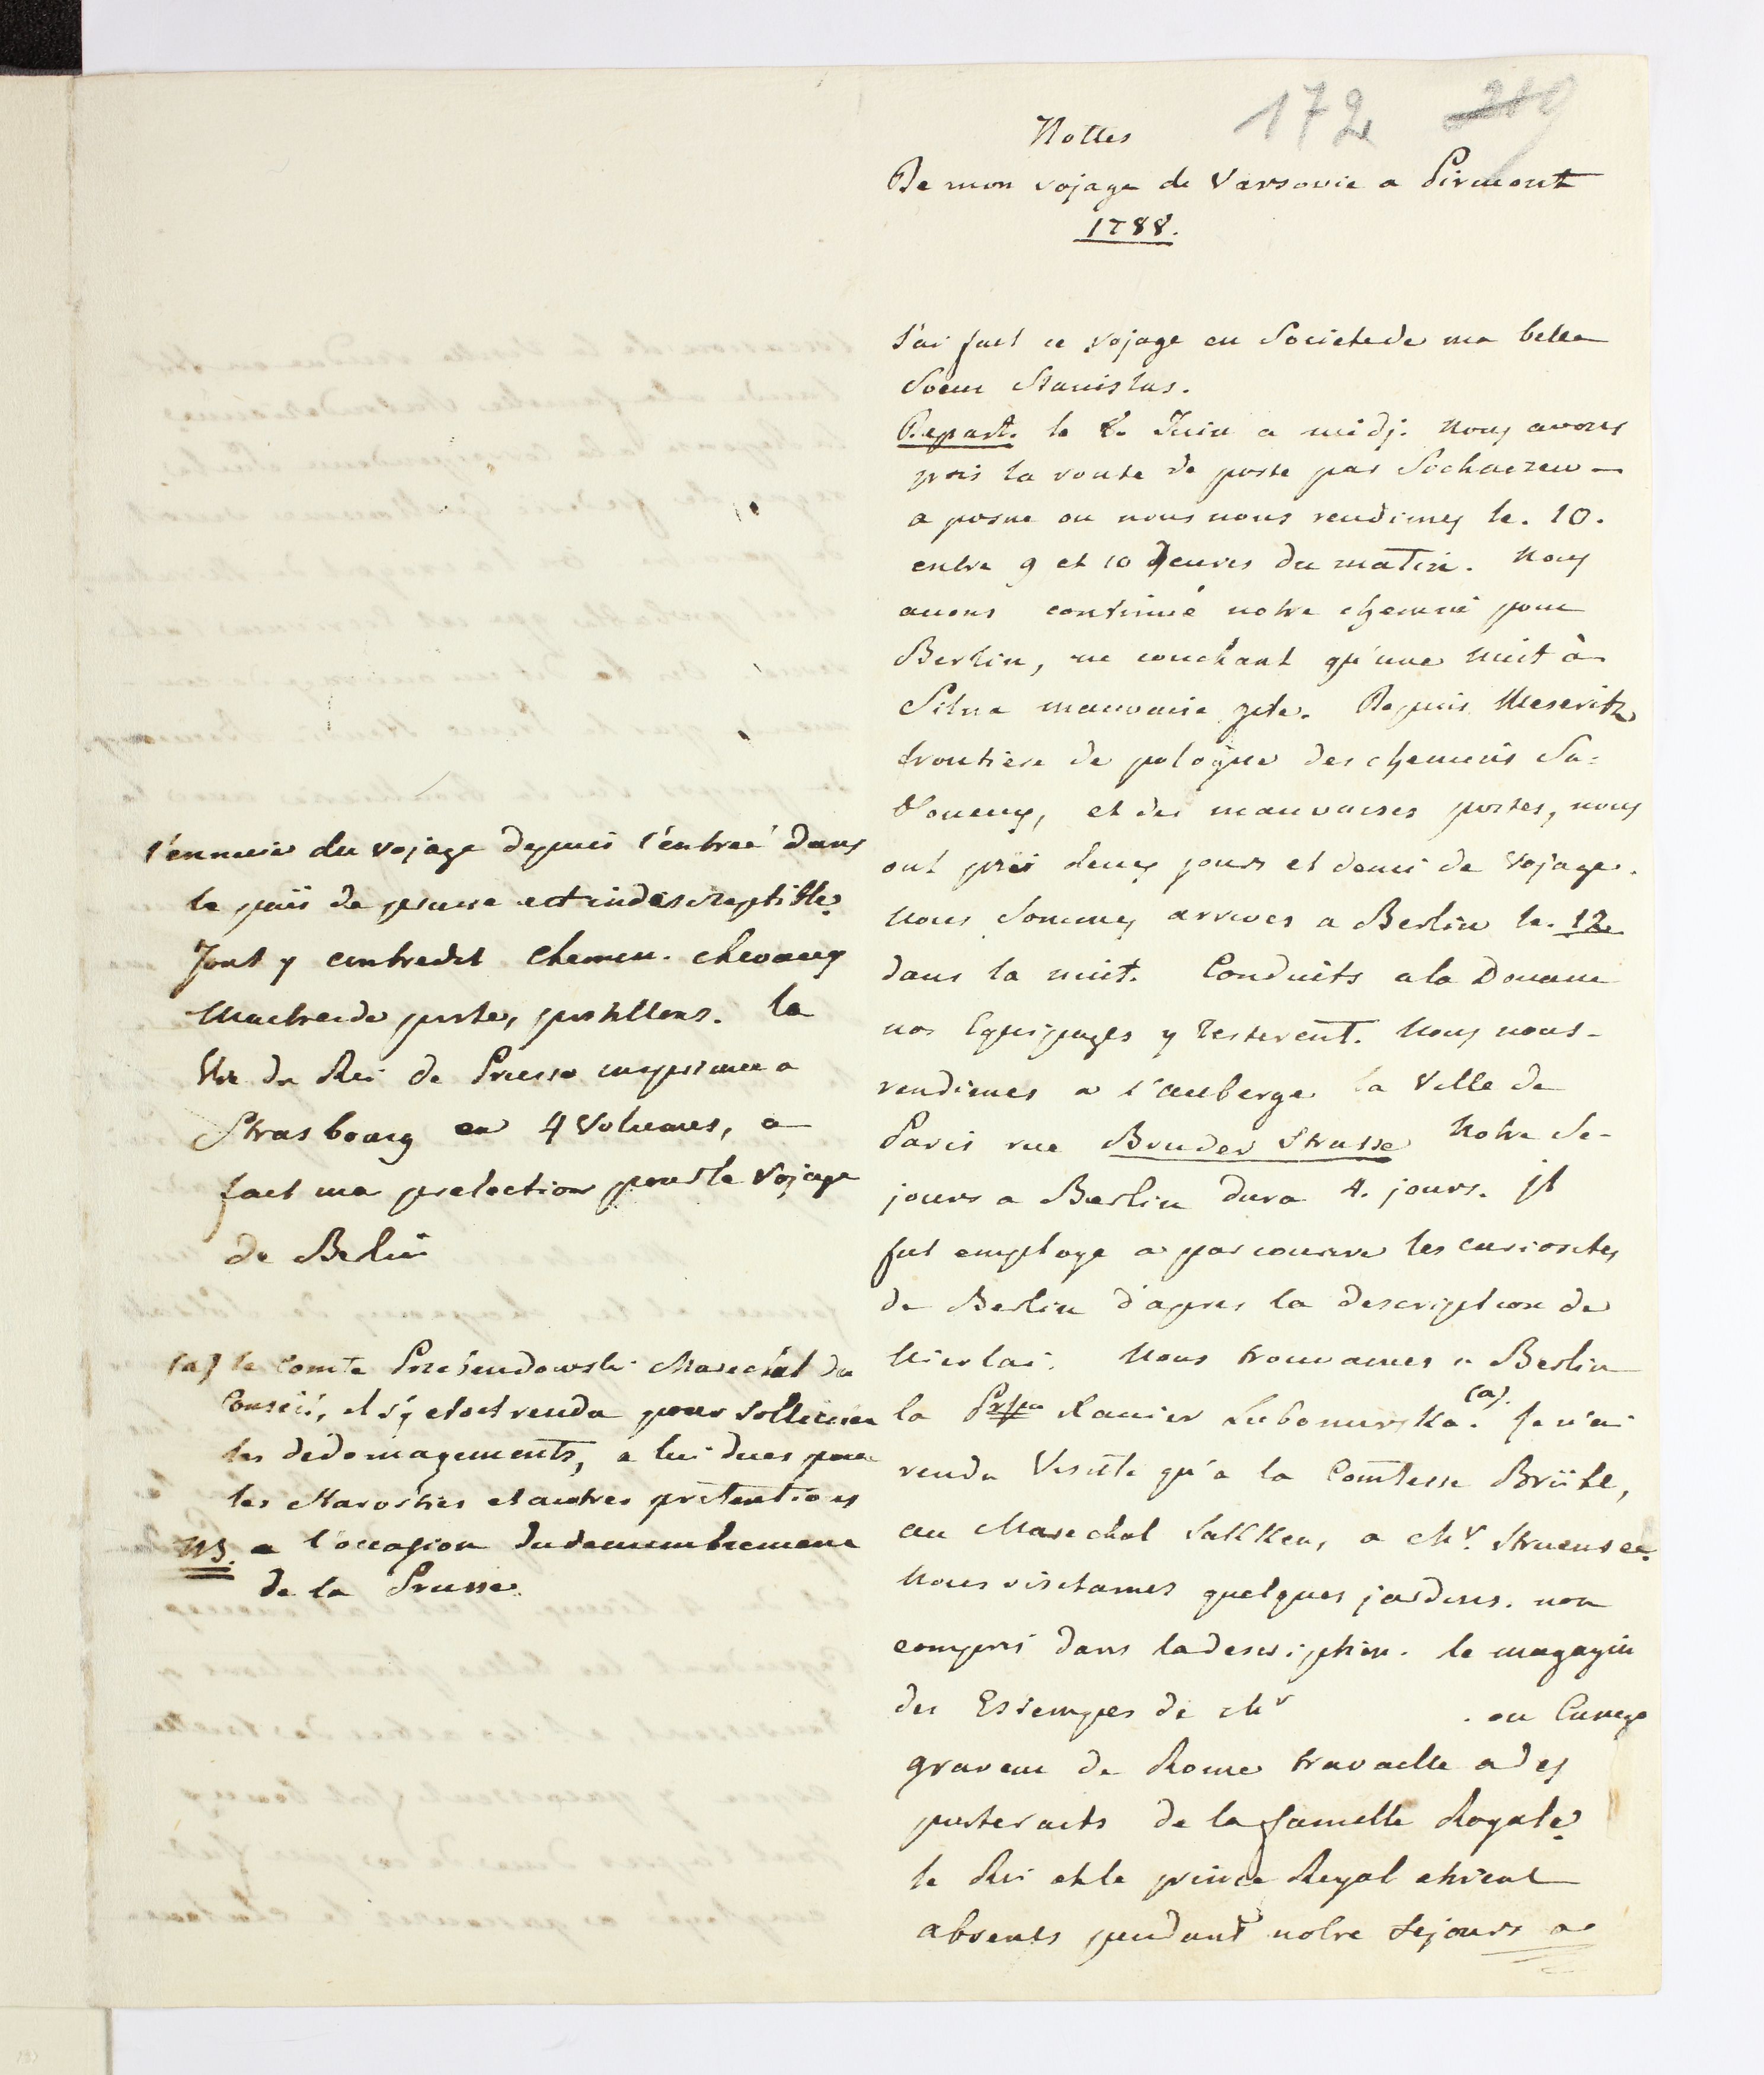 172 219
Nottes
De mon vojage de Varsovie a Pirmont
1788.
J'ai fait ce vojage en Societe de ma belle
Soeur Stanislas.
Depart. le 8. Juin a midj. Nous avons
pris la route de poste par Sochaczew
a posne ou nous nous rendimes le. 10.
entre 9 et 10 heures du matin. Nous
avons continué notre chemin pour
Berlin, ne couchant qu'une nuit à
Pilne mauvaise gite. Depuis Meseritz
frontiere de pologne des chemins Sa-
bloneux, et des mauvaises postes, nous
ont pris deux jours et demi de vojage.
Nous Sommes arrives a Berlin le. 12.
dans la nuit. Conduits a la Douane
nos Equipages y resterent. Nous nous
rendimes a l'auberge la Ville de
Paris rue Bruder Strasse Notre Se-
jours a Berlin dura 4. jours. Il
fut employe a parcourire les curiosites
de Berlin d'apres la description de
Nicolai. Nous trouvames a Berlin
la Pr[...] Xavier Lubomirska. (a). Je n'ai
rendu Visitte qu'a la Comtesse Brühl,
au Marechal Sakken, a Mr. Struensee.
Nous visitames quelques jardins. non
compris dans la description. le magazin
des Estempes de Mr . ou Cunego
graveur de Rome travaille a des
porteraits de la famille Royale.
le Roi et le prince Royal etoient
absents pendant notre Sejours a
l'ennuie du vojage depuis l'entreé dans
le païs de prusse est indescreptible.
Tout y contredit chemin. chevaux
Maitre de poste, postillons. la
Vie du Roi de Prusse imprimee a
Strasbourg en 4 Volumes, a
fait ma prelection pour le vojage
de Berlin
(a) le Comte Przebendowski Marechal du
Conseil, il s'y etoit rendu pour solliciter
les dedomagements, a lui dues pour
les Starosties et autres prétentions
NB. a l'occasion du demembrement
de la Prusse.